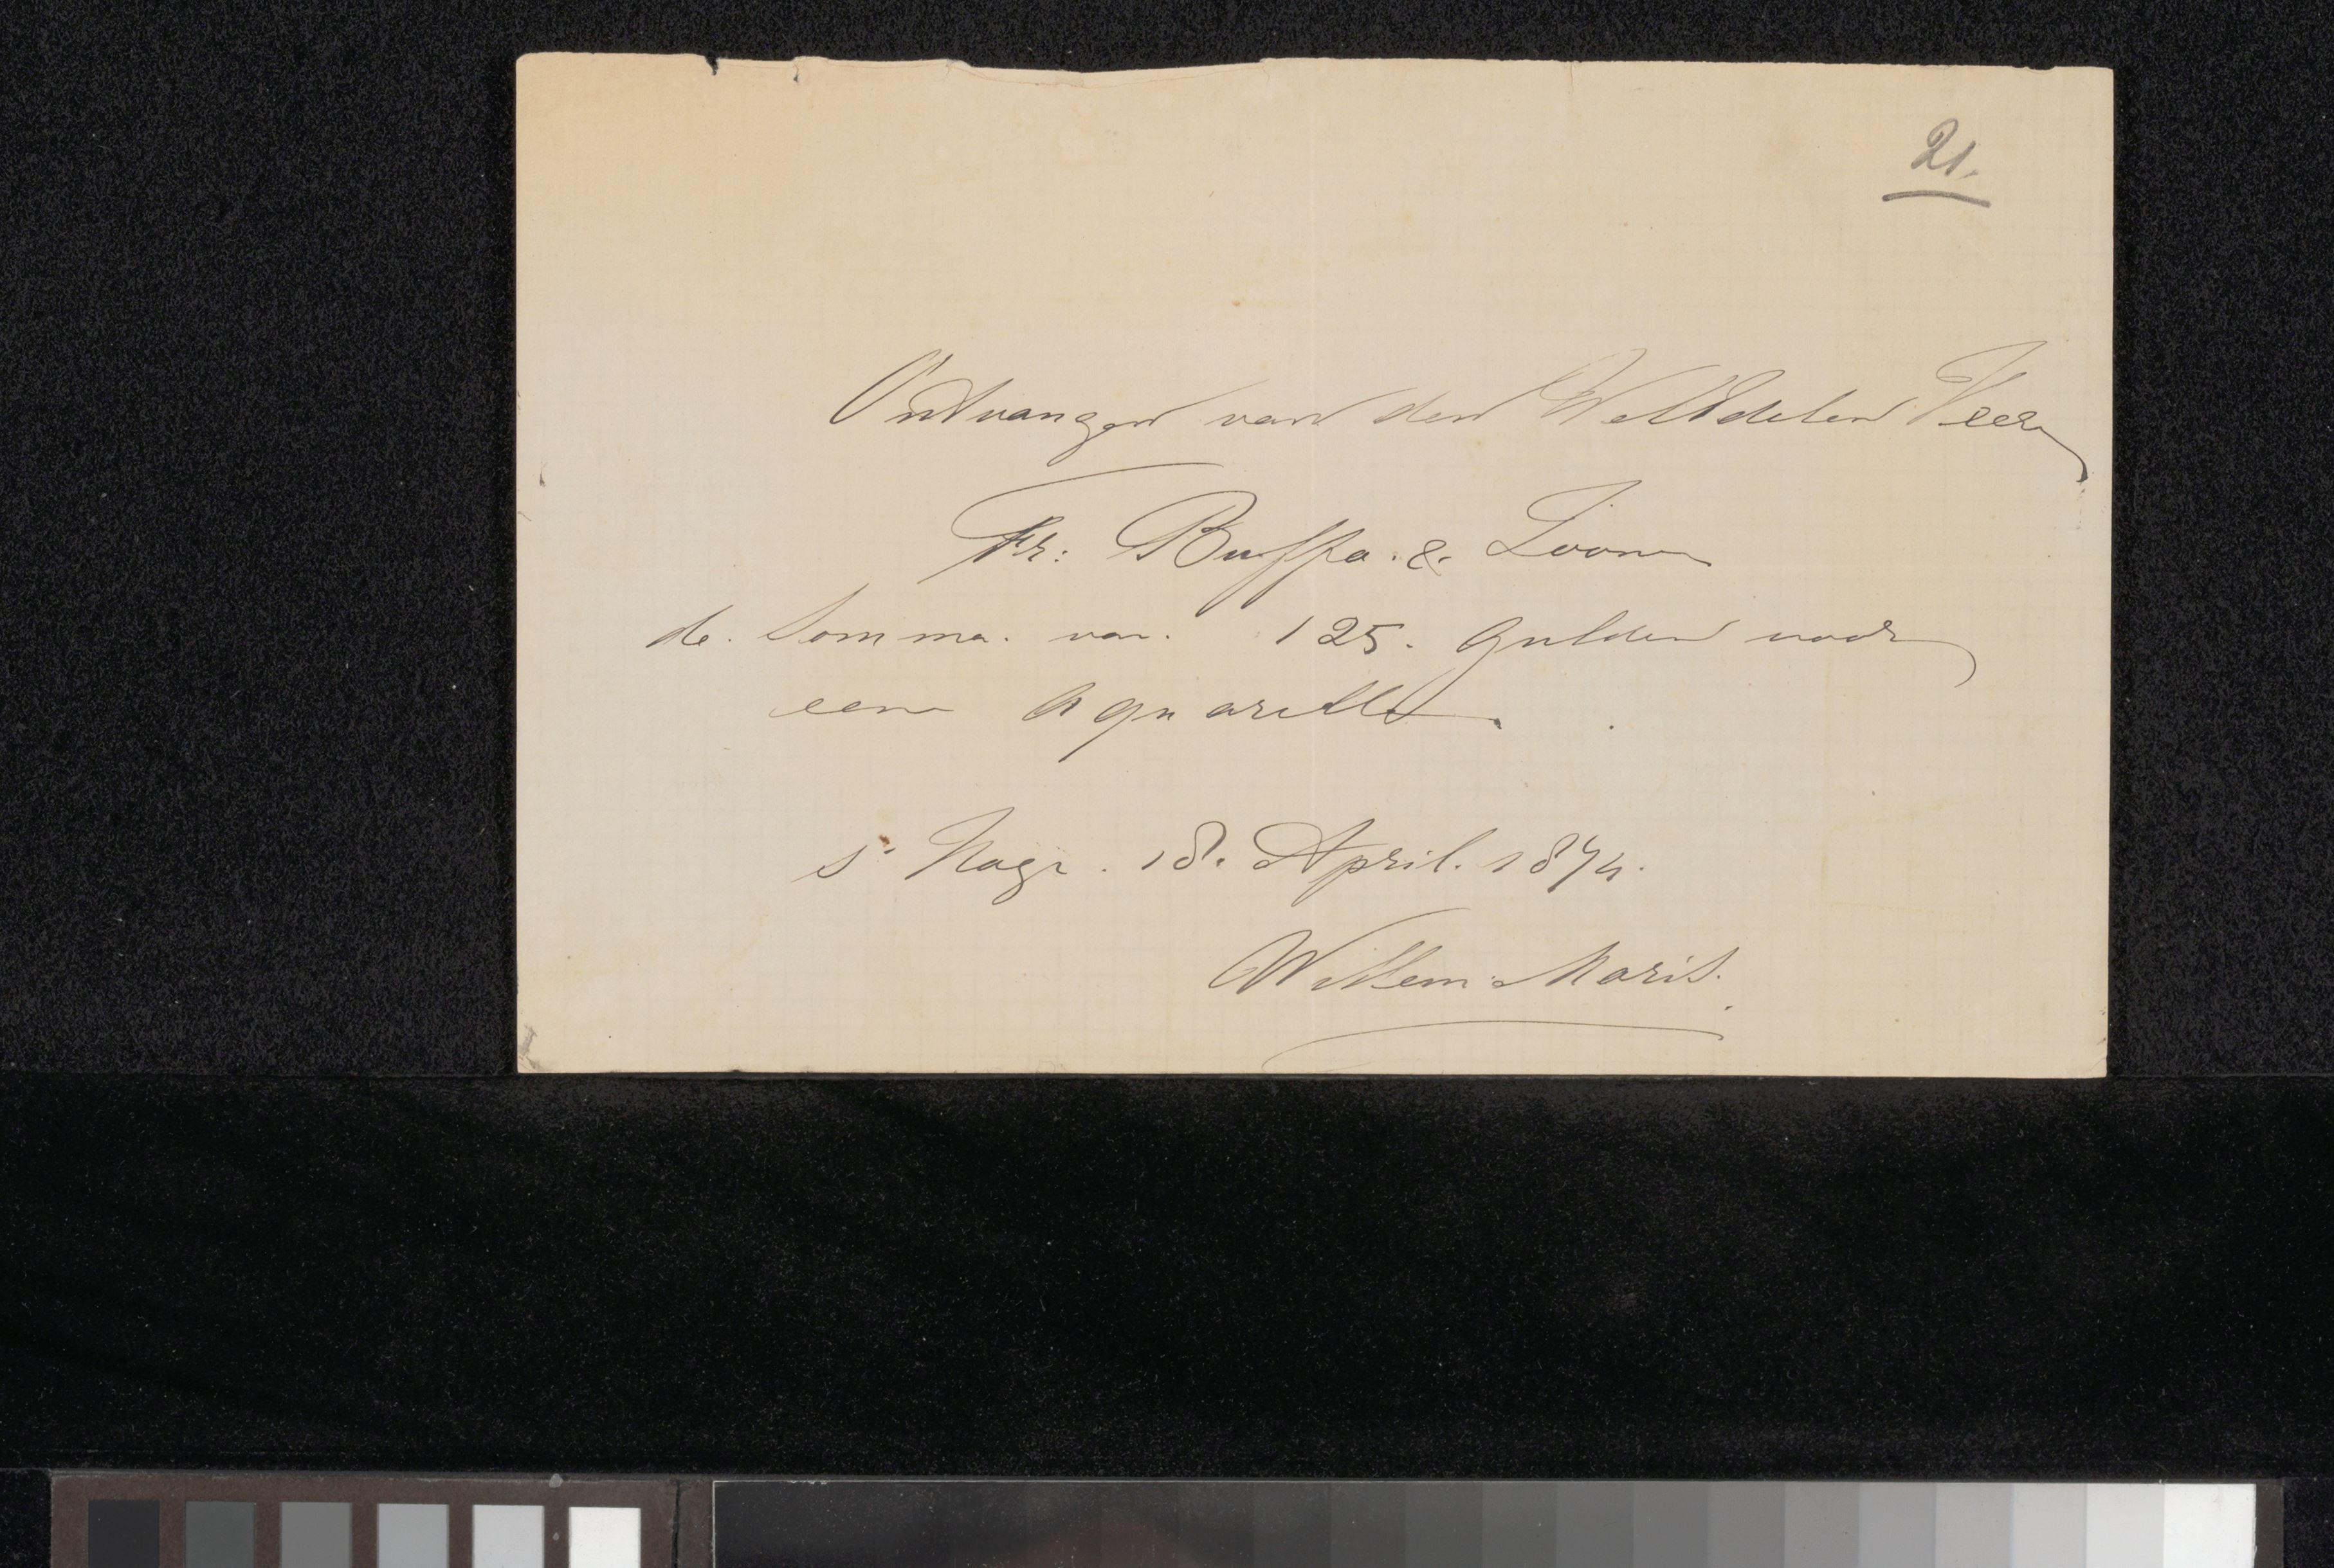 21.
Ontvangen van den WelEdelen Heer
Fr: Buffa. &. Zoon
de. Somma. van. 125. gulden voor
een Aquarelle.
s' Hage. 18. April. 1874.
Willem Maris.